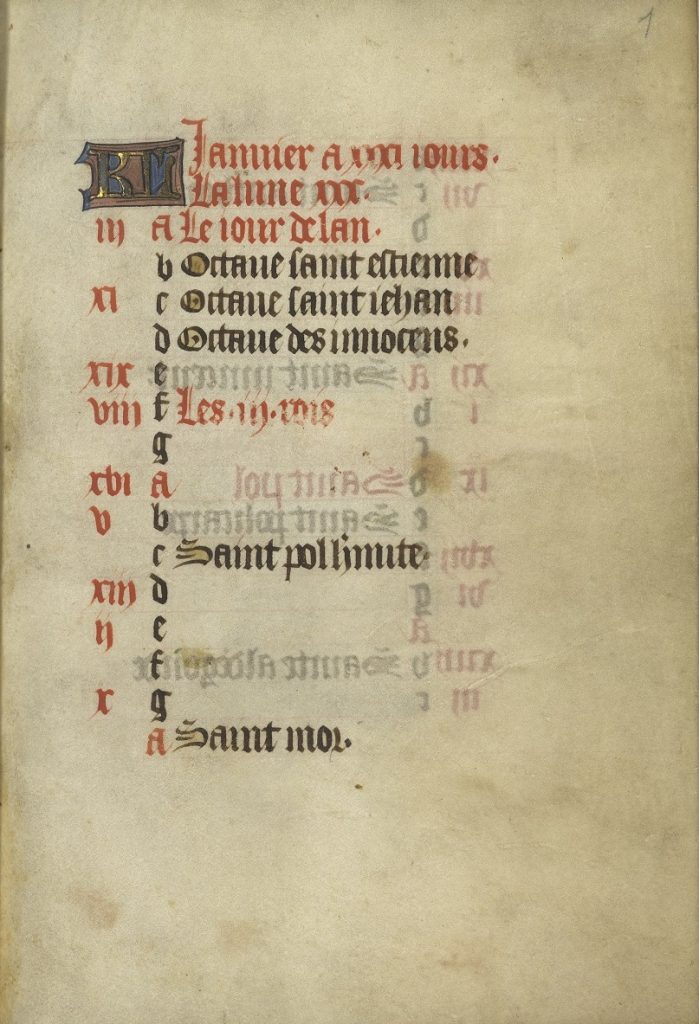 1
KL Januier a xxxi iours.
La lune xxx.
iii A Le iour de lan.
b Octaue saint estienne
xi c Octaue saint iehan
d Octaue des innocens.
xix e
viii f Les .iii. rois
g
xvi a
v b
c Saint pol hmite.
xiii d
ii e
f
x g
a Saint mor.